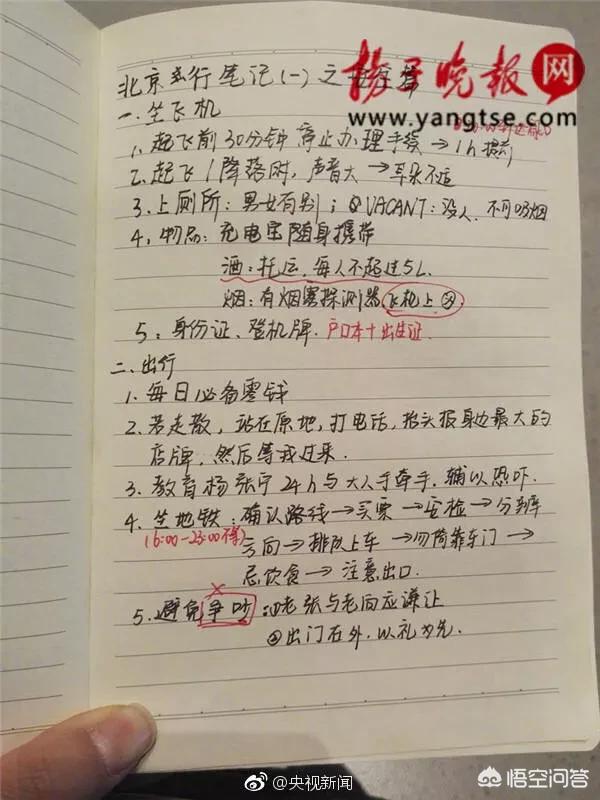 扬子晚报网
www.yangtse.com
北京出行笔记(一)之
一.坐飞机
1.起飞前30分钟停止办理手续→1h提前
2.起飞/降落时,声音大→耳朵不适
3.上厕所:男女有别;②VACANT:没人.不可吸烟
4.物品:充电宝随身携带
酒:托运,每人不超过5L.
烟:有烟雾探测器飞机上
5.身份证、登机牌.户口本+出生证
二、出行
1.每日必备零钱
2.若走散,站在原地,打电话,抬头报身边最大的
店牌,然后等我过来.
3.教育杨张宁24h与大人手牵手.辅以恐吓.
4.坐地铁:确认路线→买票→安检→分辨
(6:00-23:00不等)
方向→排队上车→勿倚靠车门→
忌饮食→注意出口.
5.避免争吵①老张与老向应谦让
②出门在外.以礼为先.
@央视新闻
悟空问答